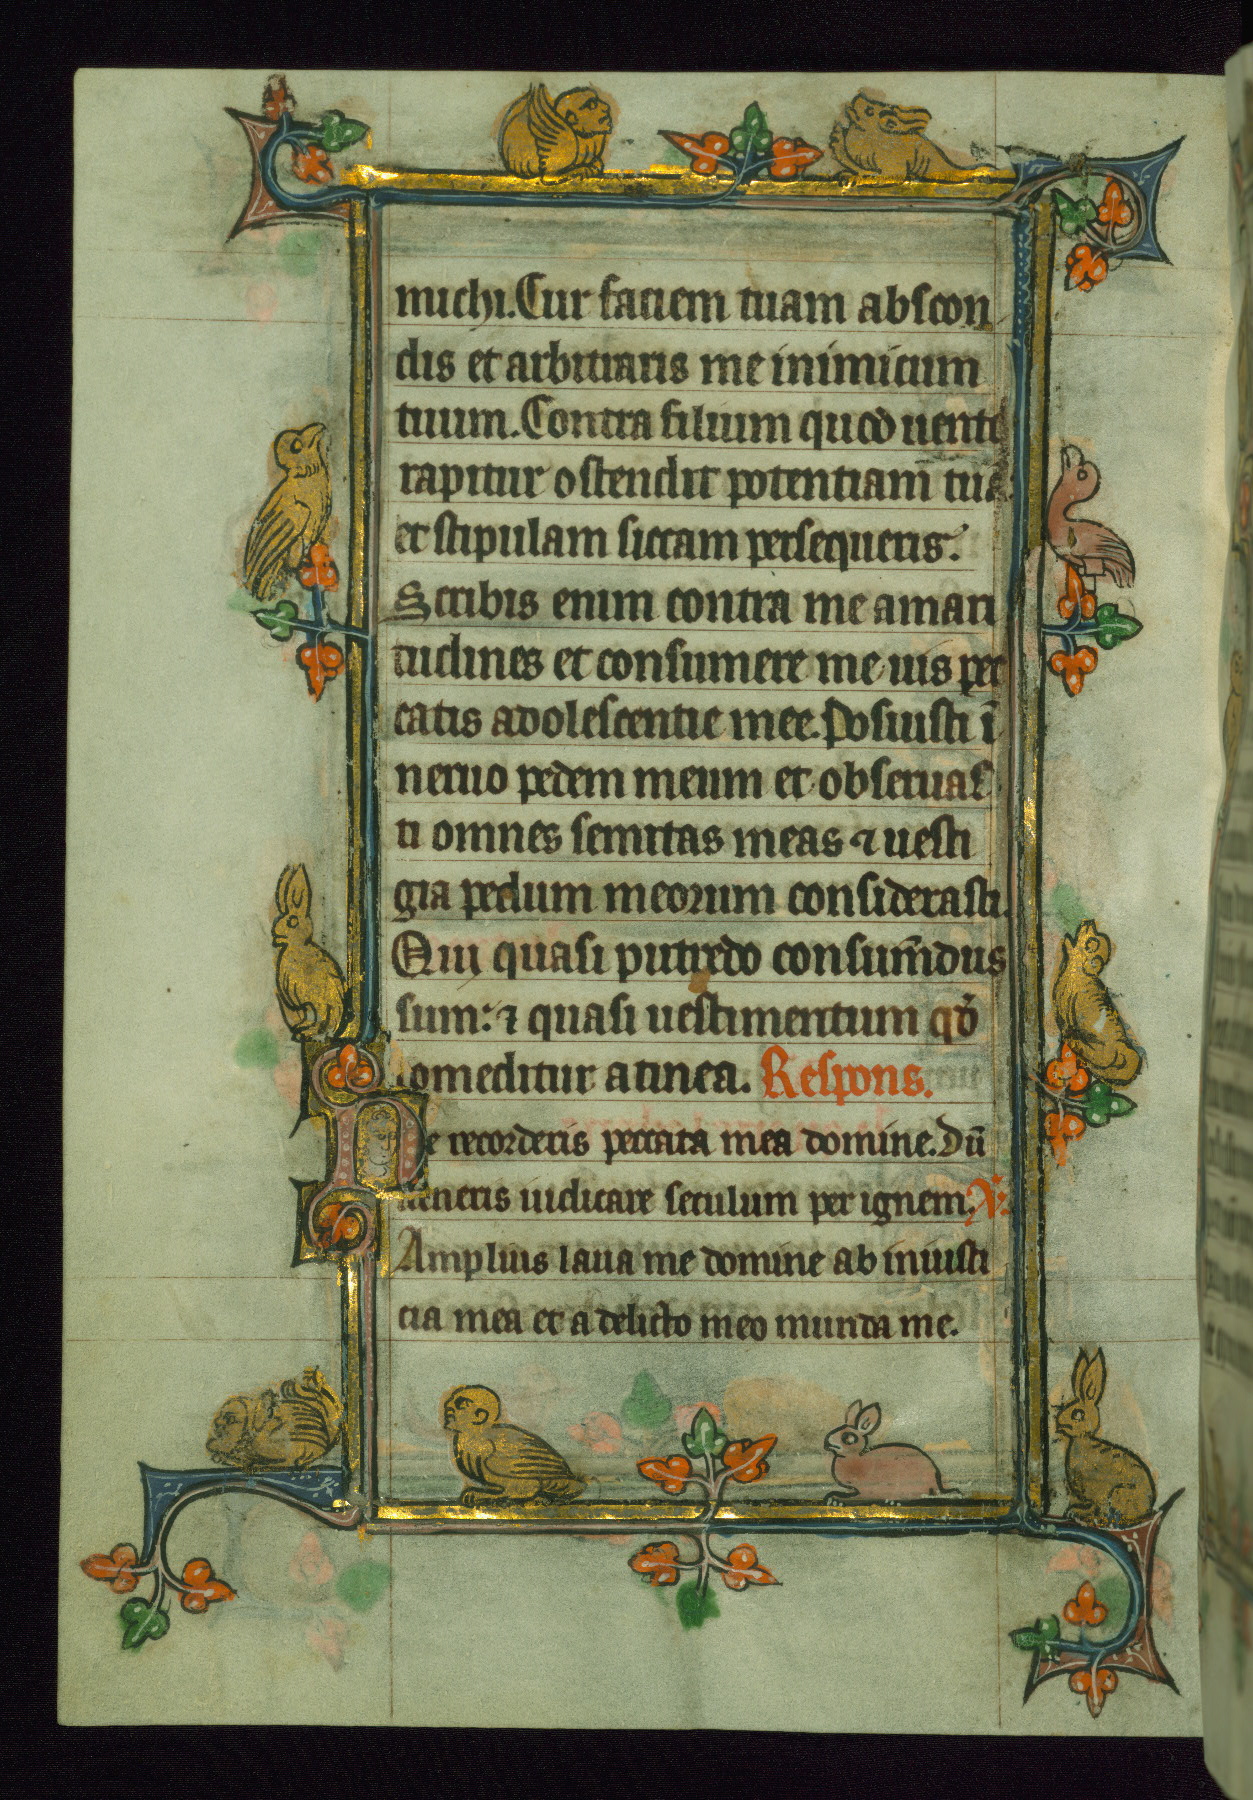 michi. Cur faciem tuam abscon
dis et arbitraris me inimicum
tuum. Contra filium quod uento
rapitur ostendit potentiam̄ tuā
et stipulam siccam persequeris.
Scribis enim contra me amari
tudines et consumere me uis pec
catis adolescentie mee. Posuisti ī
neruo pedem meum et obseruas
ti omnes semitas meas ⁊ uesti
gia pedum meorum considerasti.
Qui quasi putredo consum̄dus
sum: ⁊ quasi uestimentum qd̓
comeditur a tinea. Respons.
Ne recorderis peccata mea domine. Dū
ueneris iudicare seculum per ignem. V:
Amplius laua me domine ab iniusti
cia mea et a delicto meo munda me.